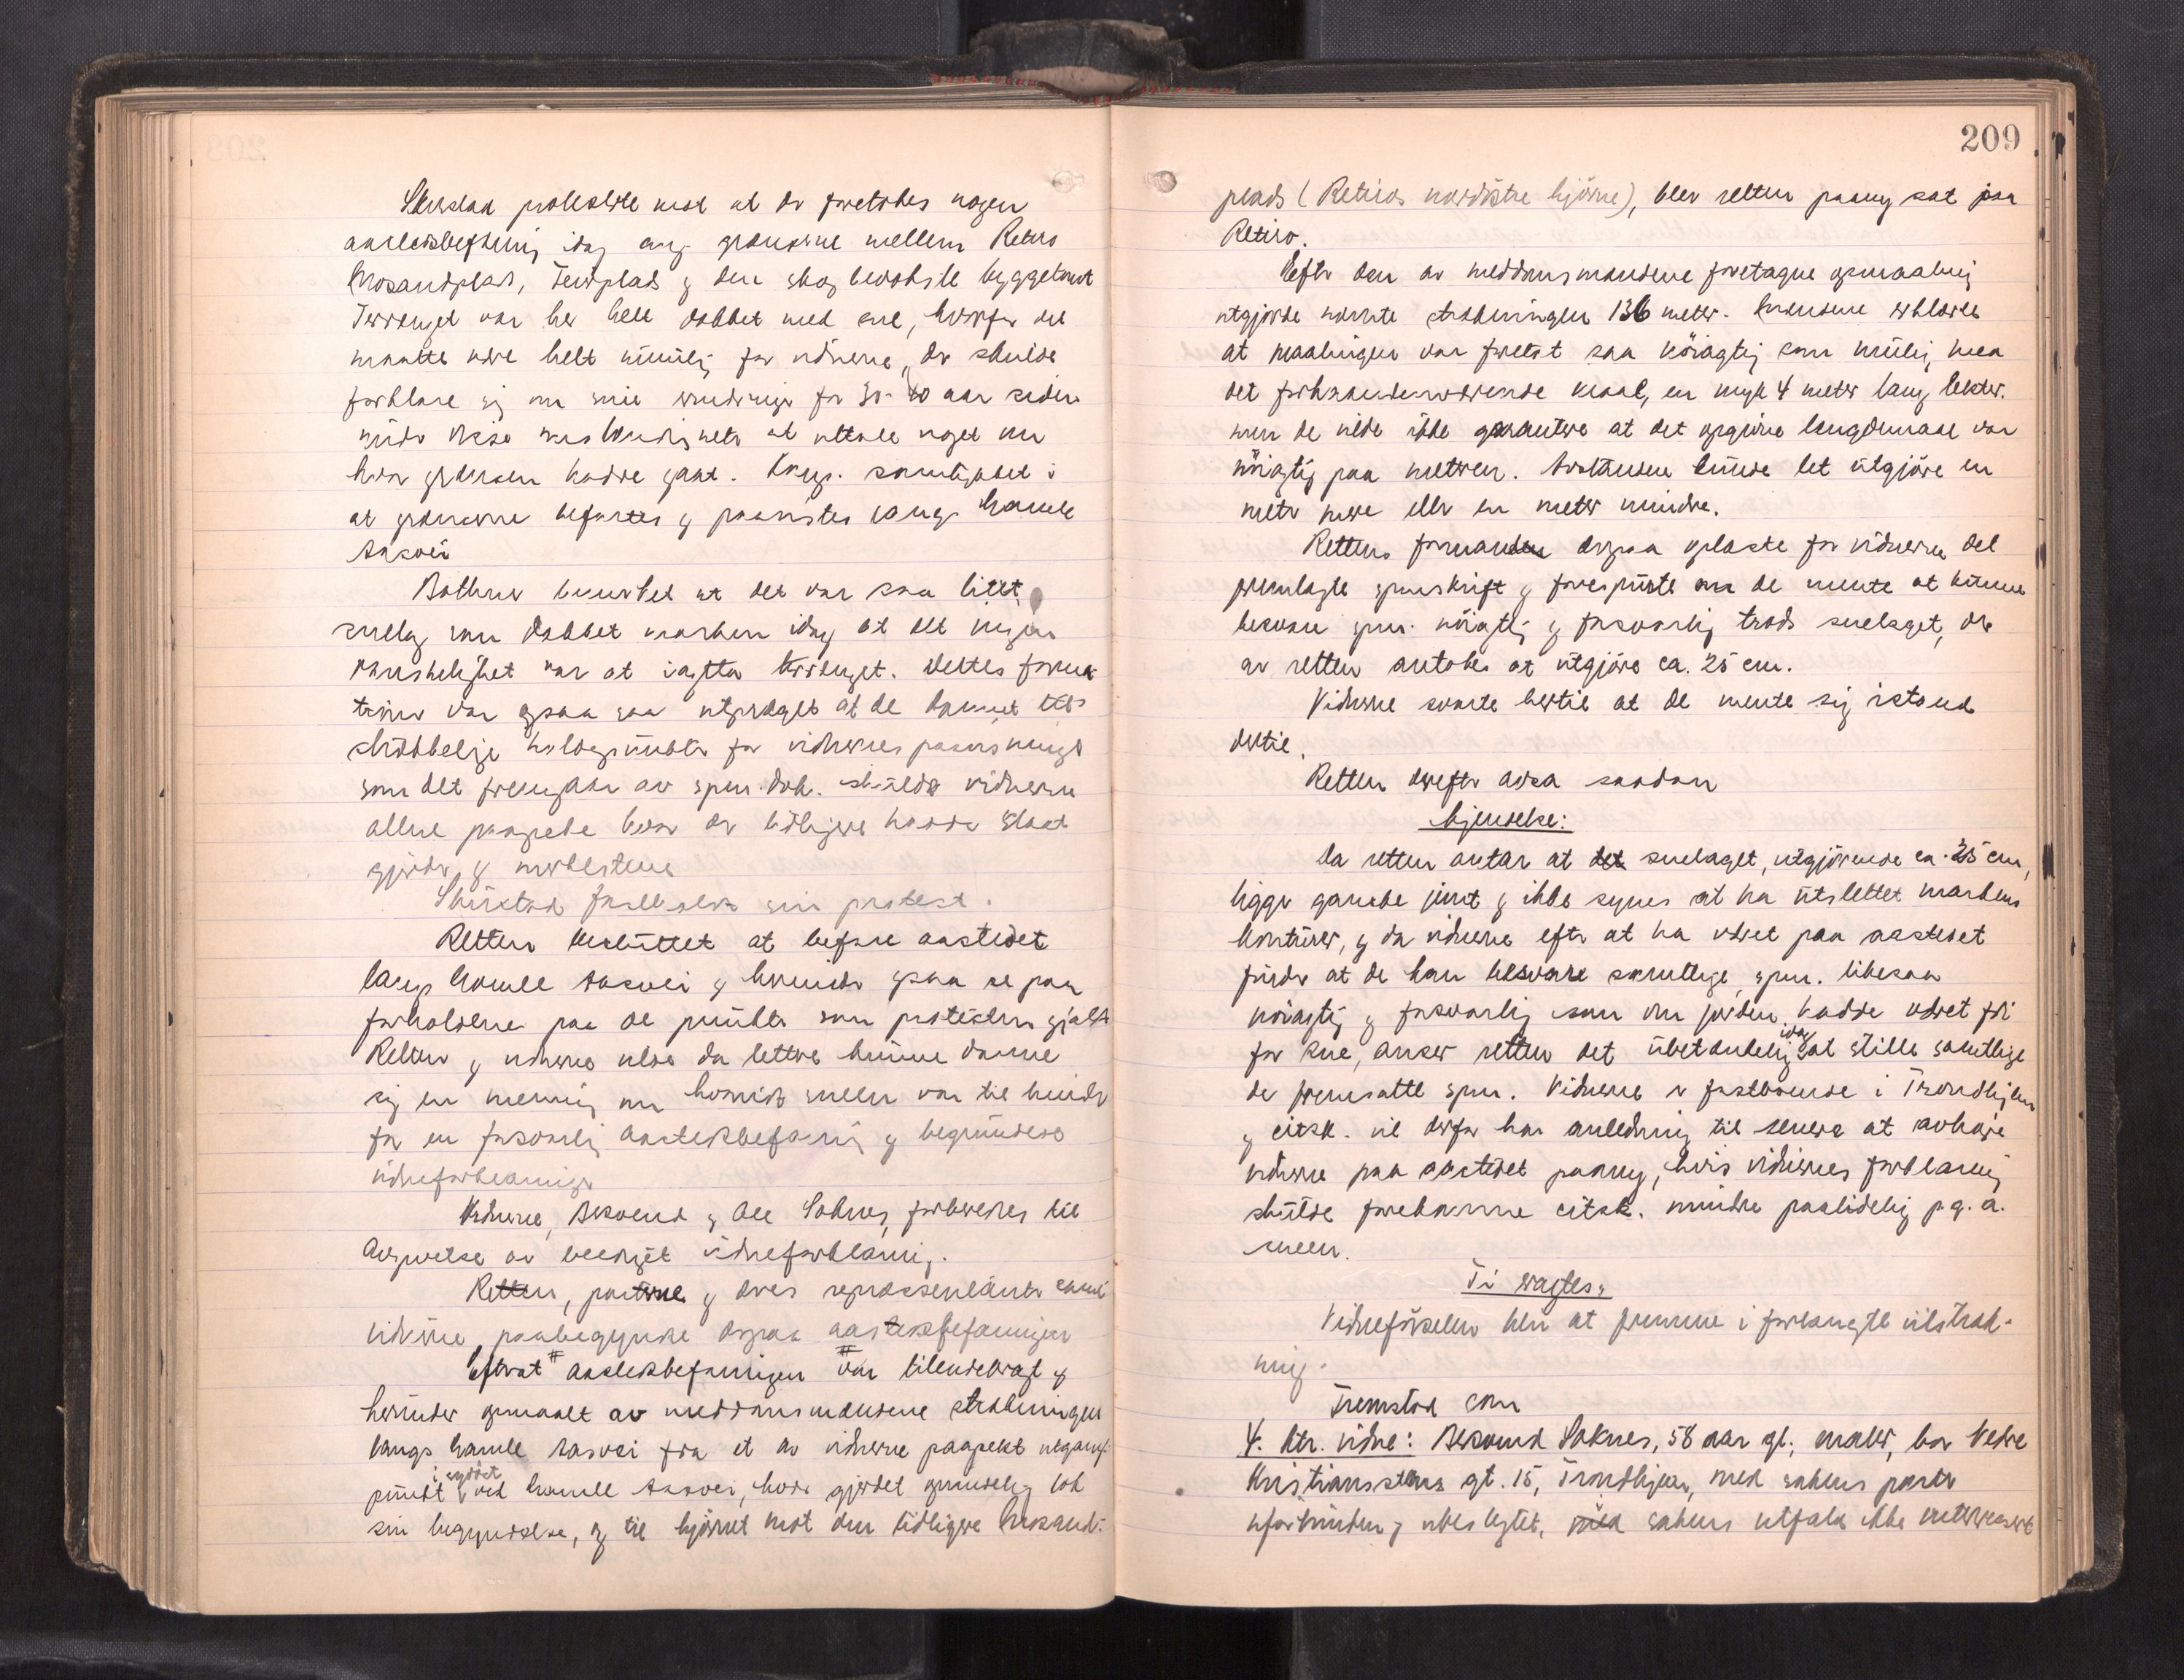 Skirstad protesterte mot at der foretokes nogen
aastedsbefaring idag ang. grænserne mellem Retiro
Krosandplads, Tenplads og den skog bevokste byggetomt
Terrænget var her helt dækket med sne, hvorfor det
maatte være helt umulig for vidnerne, der skulde
forklare sig om sine erindringer for 30-40 aar siden
med at uttale noget om
hvor grænsen hadde gaat. Langs. samtykket i
at grænserne befartes og paavistes langs gamle
Aasvei
Bothner bemerket at det var saa litet
snelag som dækket marken idag at det ingen
vanskelighet var at iagtta terrænget. Dettes forma-
tioner var ogsaa saa utpræget at de dannet
holdepunkter for vidnernes paavisninger
som det fremgaar av spm. dok. skulde vidnerne
allene paapeke hvor der tidligere hadde staat
gjerder og merkestene
Skirstad fastholdt sin protest.
Retten besluttet at befare aastedet
langs gamle Aasvei og herunder ogsaa se paa
forholdene paa de punkter som protesten gjaldt
Retten og vidnerne vilde da lettere kunne danne
sig en mening om hvorvidt sneen var til hinder
for en forsvarlig aastedsbefaring og begrundede
vidneforklaringer
Vidnerne, Arsvend og Ole Saknes, forberedtes til
avgivelse av beediget vidneforklaring.
Retten, parterne og deres repræsentanter samt
vidnerne paabegyndte derpaa aastedsbefaringen
Efterat aastedsbefaringen var tilendebragt og
herunder opmaalt av meddomsmændene strækningen
langs gamle Aasvei fra et av vidnerne paapekt utgangs-
punkt i sydøst ved gamle Aasvei, hvor gjerdet oprindelig tok
sin begyndelse, og til hjørnet mot den tidligere Krosand-
209
plads (Retiros nordøstre hjørne), blev retten paany sat paa
Retiro.
Efter den av meddomsmændene foretagne opmaaling
utgjorde nævnte strækningen 136 meter. Mændene erklærte
at maalingen var foretat saa nøiagtig som mulig med
det forhaandenværende maal, en myk 4 meter lang lekter.
men de vilde ikke garantere at det opgivne længdemaal var
nøiagtig paa meteren. Avstanden kunde let utgjøre en
meter mere eller en meter mindre.
Rettens formand derpaa oplæste for vidnerne det
fremlagte spmskrift og forespurte om de mente at kunne
besvare spm. nøiagtig og forsvarlig trods snelaget, der
av retten antokes at utgjøre ca. 25 cm.
Vidnerne svarte hertil at de mente sig istand
dertil.
Retten derefter avsa saadan
Kjendelse:
Da retten antar at det snelaget, utgjørende ca. 25 cm,
ligger ganske jevnt og ikke synes at ha utslettet markens
konturer, og da vidnerne efter at ha været paa aastedet
finder at de kan besvare samtlige spm. likesaa
nøiagtig og forsvarlig som om jorden hadde været fri
for sne, anser retten det ubetænkelig idag at stille samtlige
de fremsatte spm. Vidnerne er fastboende i Trondhjem
og citsk. vil derfor ha anledning til senere at avhøre
vidnerne paa aastedet paany, hvis vidnernes forklaring
skulde forekomme citsk. mindre paalidelig p.g.a.
sneen.
Ti eragtes:
Vidneførselen blir at fremme i forlangte utstræk-
ning.
Fremstod som
4. htr. vidne: Arsvend Saknes, 58 aar gl., maler, bor Nedre
Kristianstens gt. 15, Trondhjem, med sakens parter
uforbunden og ubeslegtet, med sakens utfald ikke interessert